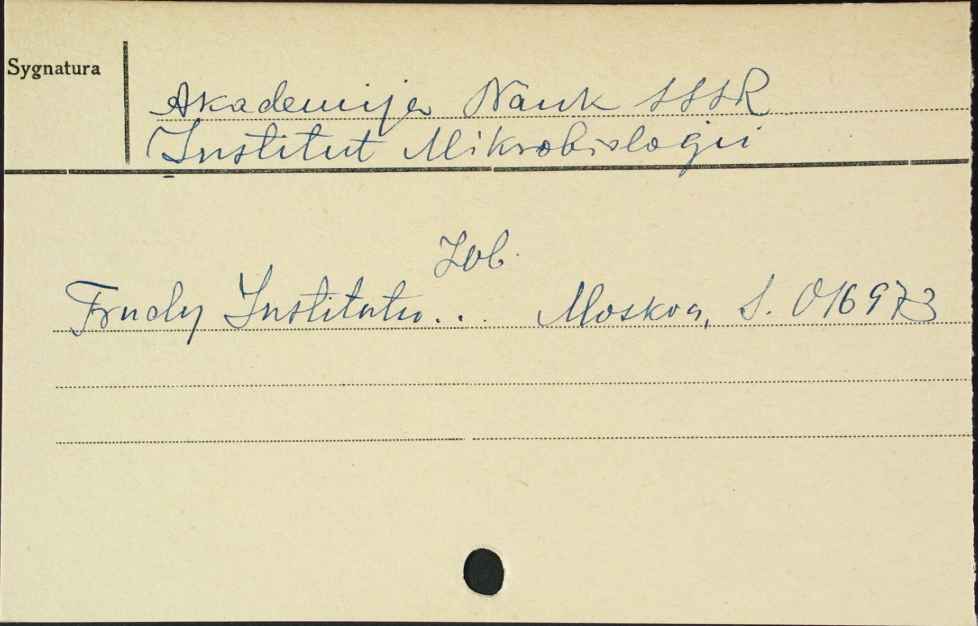 Sygnatura
Akademija Nauk SSSR
Institut Mikrobiologii
Zob.
Trudy Instituta... Moskva, S. 016973